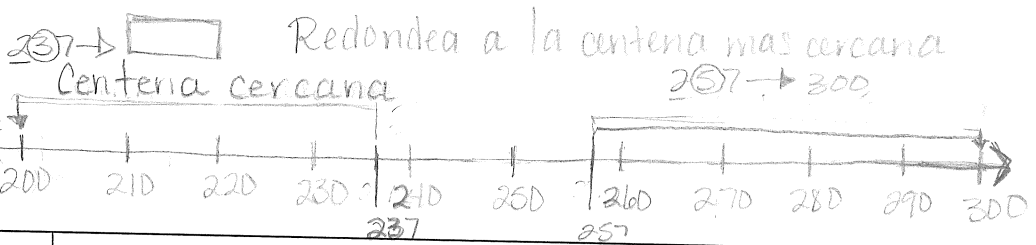 Redondea a la centena mas cercana
237 →
Centena cercana
257 → 300
200 210 220 230 240 250 260 270 280 290 300
237 257